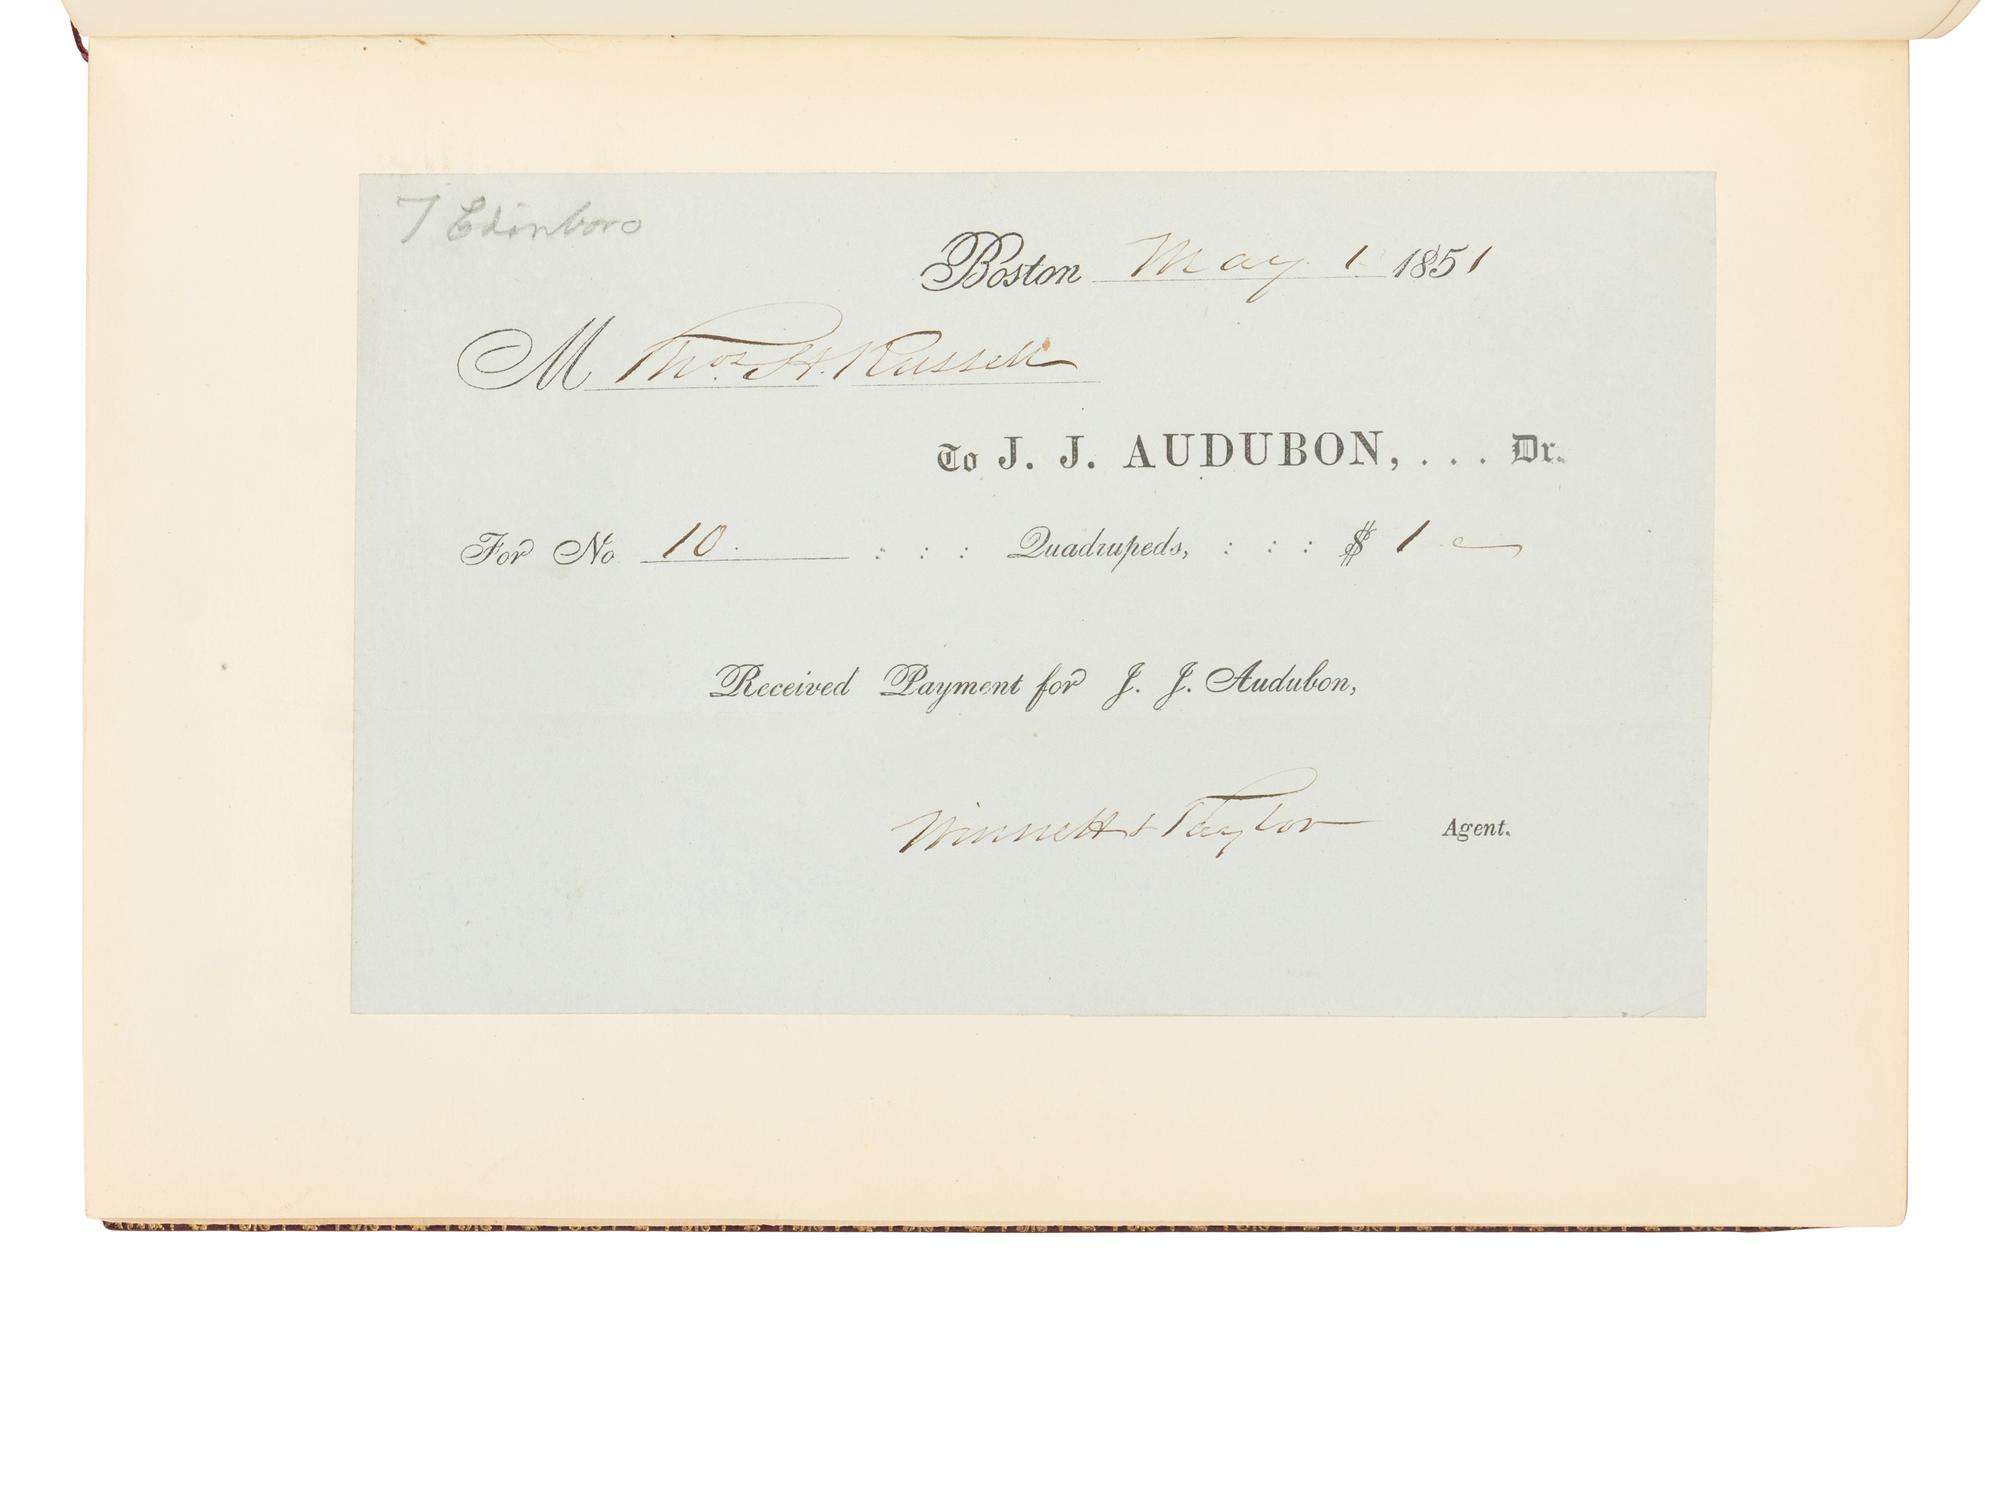 7 Edinboro
Boston May 1 1851
M Thos. H. Russell
To J. J. AUDUBON, . . . Dr.
For No 10. : : : Quadrupeds, : : : $ 1
Received Payment for J. J. Audubon,
& Taylor Agent.